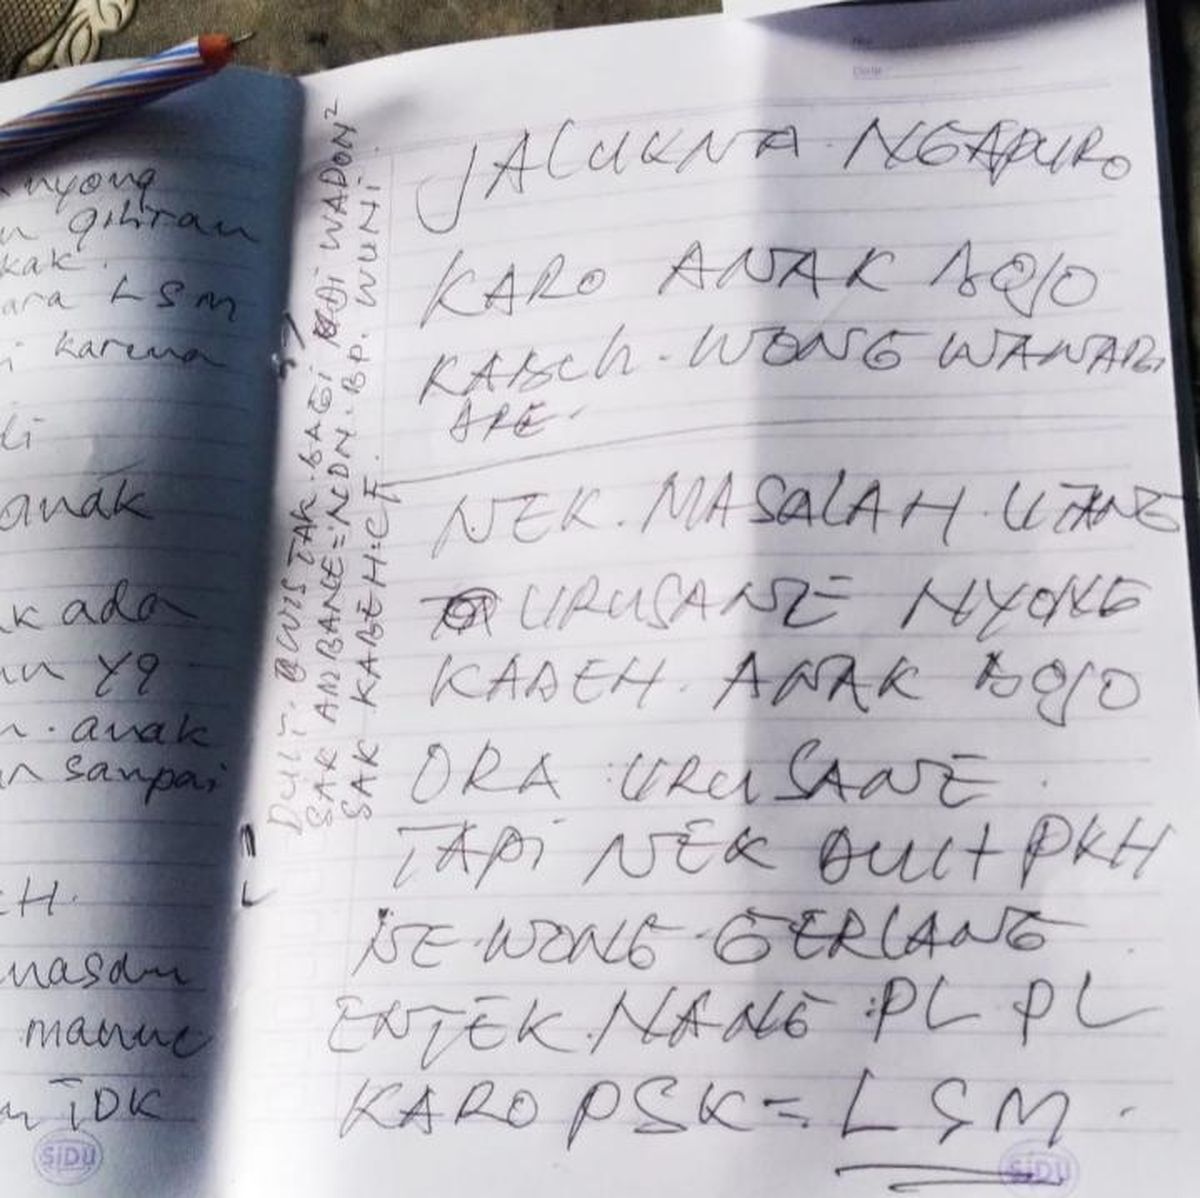 nyong
gihtan
kak.
ara LSM
i karena
di
anak
k ada
yg
n. anak
n sampai
CH.
manut
IDK
SiDU
DUIT. WIS TAK BAGI DI WADON²
SAK AMBANE=NDN. BP. WUNI.
SAK KABEH.CF.
JALUKNA. NGAPURO
KARO ANAK BOJO
KABEH. WONG WANARE
APE.
NEK. MASALAH. UTANG
URUSANE NYONG
KABEH. ANAK BOJO
ORA URUSANE.
TAPI NEK DUIT PKH
NE. WONG. GERLANG
ENTEK. NANG PL PL
KARO PSK = LSM.
SiDU